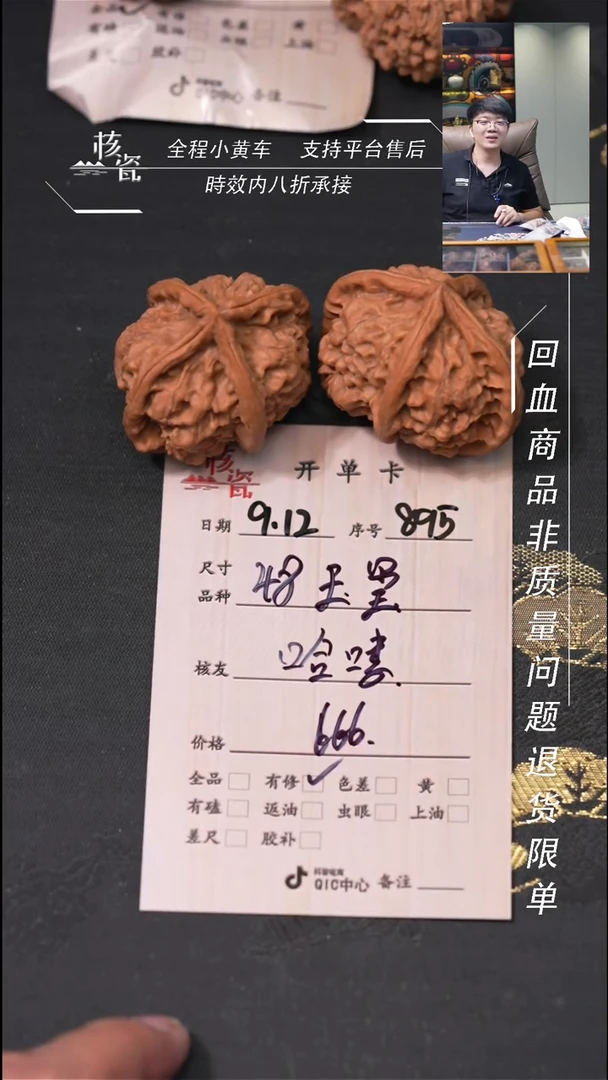 全品 有修 色差 黄
有磕 返油 虫眼 上油
差尺 胶补
QIC中心 备注
核瓷
全程小黄车 支持平台售后
時效内八折承接
回血商品非质量问题退货限单
核瓷
开单卡
日期 9.12 序号 895
尺寸
品种 48
核友 哈喽
价格 666.
全品 有修 ✓ 色差 黄
有磕 返油 虫眼 上油
差尺 胶补
抖音电商
QIC中心 备注